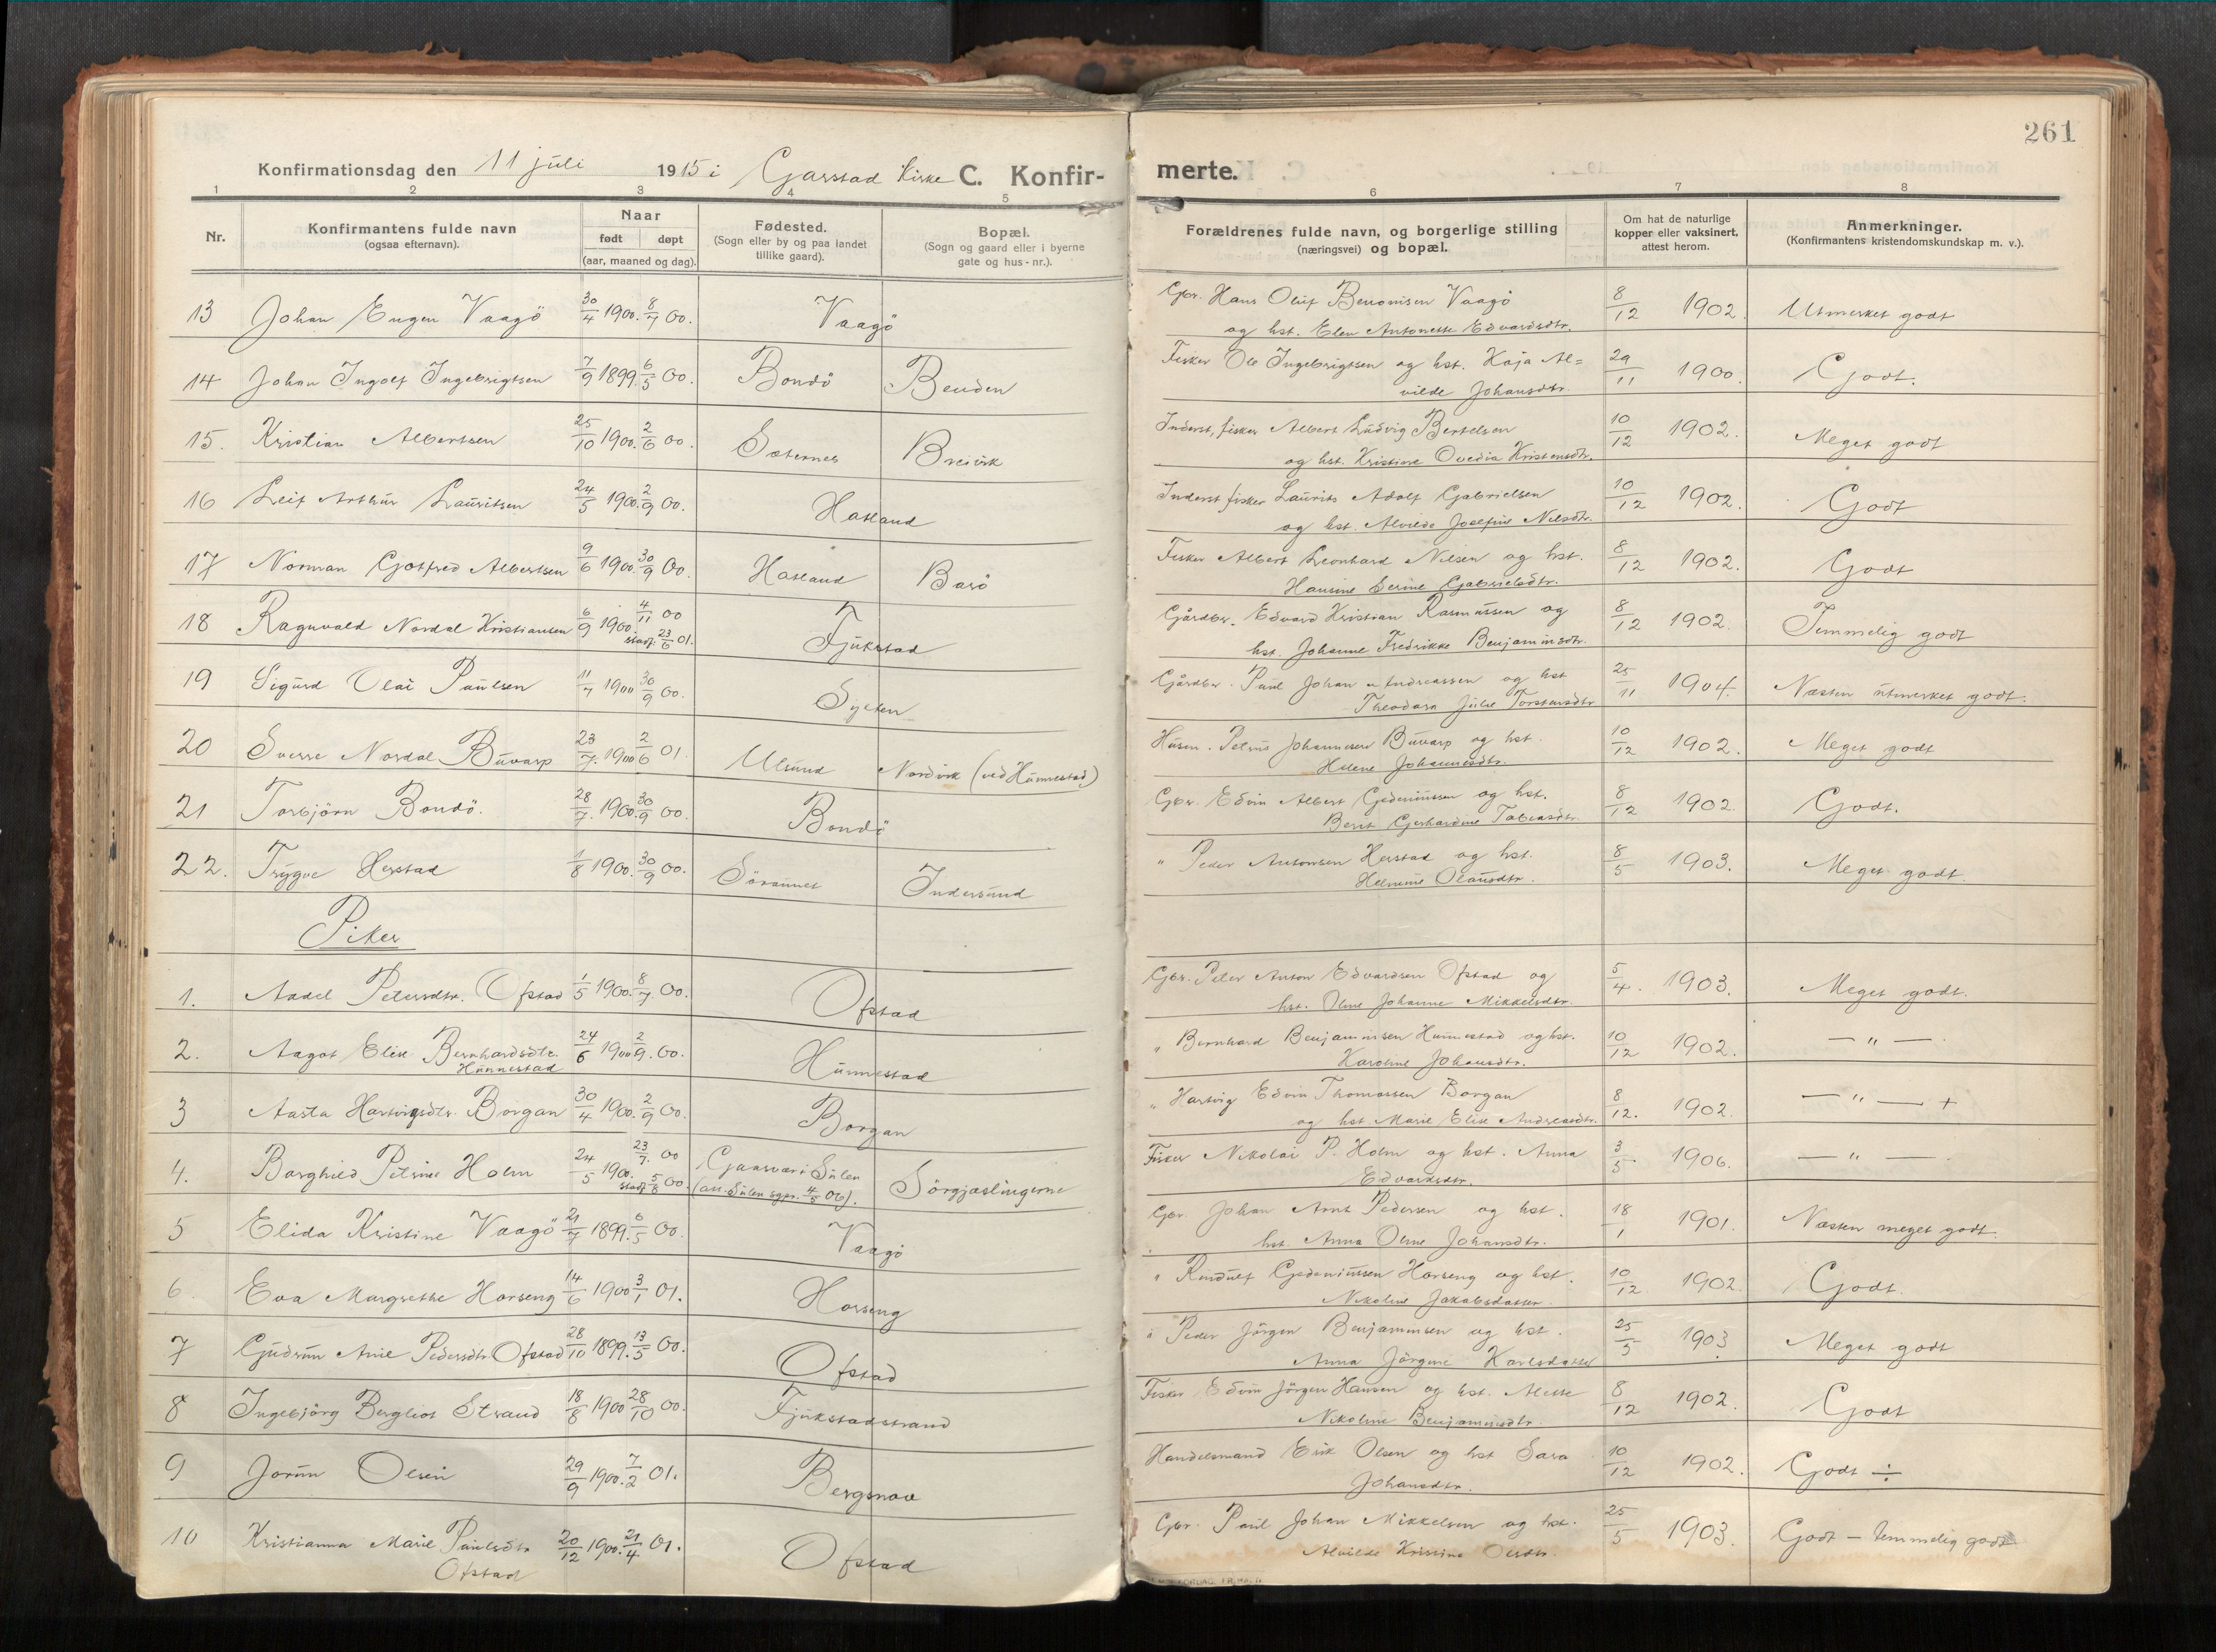 261
Konfirmationsdag den 11 juli 1915 i Garstad Kirke C. Konfirmerte.
1 2 3 4 5 6 7 8
Nr.
Konfirmantens fulde navn
(ogsaa efternavn).
Naar
født døpt
(aar, maaned og dag).
Fødested.
(Sogn eller by og paa landet
tillike gaard).
Bopæl.
(Sogn og gaard eller i byerne
gate og hus-nr.).
Forældrenes fulde navn, og borgerlige stilling
(næringsvei) og bopæl.
Om hat de naturlige
kopper eller vaksinert,
attest herom.
Anmerkninger.
(Konfirmantens kristendomskundskap m. v.).
13 Johan Eugen Vaagö 30/4 1900. 8/7 00. Vaagö Gbr. Hans Oluf Benonisen Vaagö 8/12 1902. Utmerket godt
og hst. Elen Antonette Edvardsdtr.
14 Johan Ingolf Ingebrigtsen 7/9 1899. 6/5 00. Bondö Benden Fisker Ole Ingebrigtsen og hst. Kaja Al= 29/11 1900. Godt.
vilde Johansdtr.
15. Kristian Albertsen 25/10 1900. 2/6 00. Sæternes Breivik Inderst, fisker Albert Ludvig Bertelsen 10/12 1902. Meget godt
og hst. Kristine Ovedia Kristensdtr.
16 Leif Arthur Lauritsen 24/5 1900. 2/9 00. Hasland Inderst fisker Laurits Adolf Gabrielsen 10/12 1902. Godt
og hst. Alvilde Josefine Nelsdtr.
17 Norman Gotfred Albertsen 9/6 1900. 30/9 00. Hasland Barö Fisker Albert Leonhard Nilsen og hst. 8/12 1902. Godt
Hansine Serine Gabrielsdtr.
18 Ragnvald Nordal Kristiansen 6/9 1900. 4/11 00 Fjukstad Gårdbr. Edvard Kristian Rasmussen og 8/12 1902. Temmelig godt
stadf. 23/6 01. hst. Johanne Fredrikke Benjaminsdtr.
19 Sigurd Olai Paulsen 11/7 1900 30/9 00. Sycten Gårdbr. Paul Johan Andreassen og hst 25/11 1904. Næsten utmerket godt.
Theodora Julie Torstensdtr
20 Sverre Nordal Buvarp 23/7. 1900 2/6 01. Ulsund Nordvik (ved Hunnestad) Husm. Petrus Johannesen Buvarp og hst. 10/12 1902. Meget godt
Helene Johannesdtr.
21 Torbjörn Bondö. 28/7. 1900. 30/9 00. Bondö Gbr. Edvin Albert Gedeniussen og hst. 8/12 1902. Godt.
Berit Gerhardine Tobiasdtr.
22. Trygve Herstad 1/8 1900. 30/9 00. Söraunet Indersund " Peder Antonsen Herstad og hst. 8/5 1903. Meget godt.
Helmine Olausdtr.
Piker
1. Aadel Petersdtr. Ofstad 1/5 1900. 8/7 00. Ofstad Gbr. Peter Anton Edvardsen Ofstad og 5/4. 1903. Meget godt.
hst. Oline Johanne Mikkelsdtr.
2. Aagot Elise Bernhardsdtr. 24/6 1900 2/9. 00. Hunnestad " Bernhard Benjaminsen Hunnestad og hst. 10/12 1902. — " —.
Hunnestad Karoline Johansdtr.
3 Aasta Hartvigsdtr. Borgan 30/4 1900. 2/9 00. Borgan " Hartvig Edvin Thomassen Borgan 8/12. 1902. — " — +
og hst Marie Elise Andreasdtr.
4. Borghild Petrine Holm 24/5 1900. 23/7. 00 Gaasvær i Sulen Sörgjæslingerne Fisker Nikolai P. Holm og hst. Anna 3/5 1906. — " —.
stadf. 5/8 00. (att. Sulen sgpr. 4/5 06). Edvardsdtr.
5 Elida Kristine Vaagö 21/7 1899. 6/5 00. Vaagö Gbr. Johan Arnt Pedersen og hst. 18/1 1901. Næsten meget godt.
hst. Anna Oline Johansdtr.
6. Eva Margrethe Horseng 14/6 1900 3/1 01. Horseng " Rindulf Gedeniussen Horseng og hst. 10/12. 1902. Godt.
Nikoline Jakobsdatter.
7 Gudrun Anie Pedersdtr. Ofstad 28/10 1899. 13/5 00. Ofstad " Peder Jörgen Benjaminsen og hst. 25/5 1903. Meget godt
Anna Jörgine Karlsdatter
8 Ingebjörg Bergliot Strand 18/8 1900 28/10 00. Fjukstadstrand Fisker Edvin Jörgen Hansen og hst. Alette 8/12 1902. Godt
Nikoline Benjaminsdtr.
9 Jorun Olsen 29/9 1900. 7/2 01. Bergsnov Handelsmand Erik Olsen og hst Sara 10/12 1902. Godt ÷
Johansdtr.
10 Kristianna Marie Paulsdtr 20/12 1900. 21/4 01. Ofstad Gbr. Paul Johan Mikkelsen og hst. 25/5 1903. Godt - temmelig godt
Ofstad Alvilde Kristine Olsdtr.